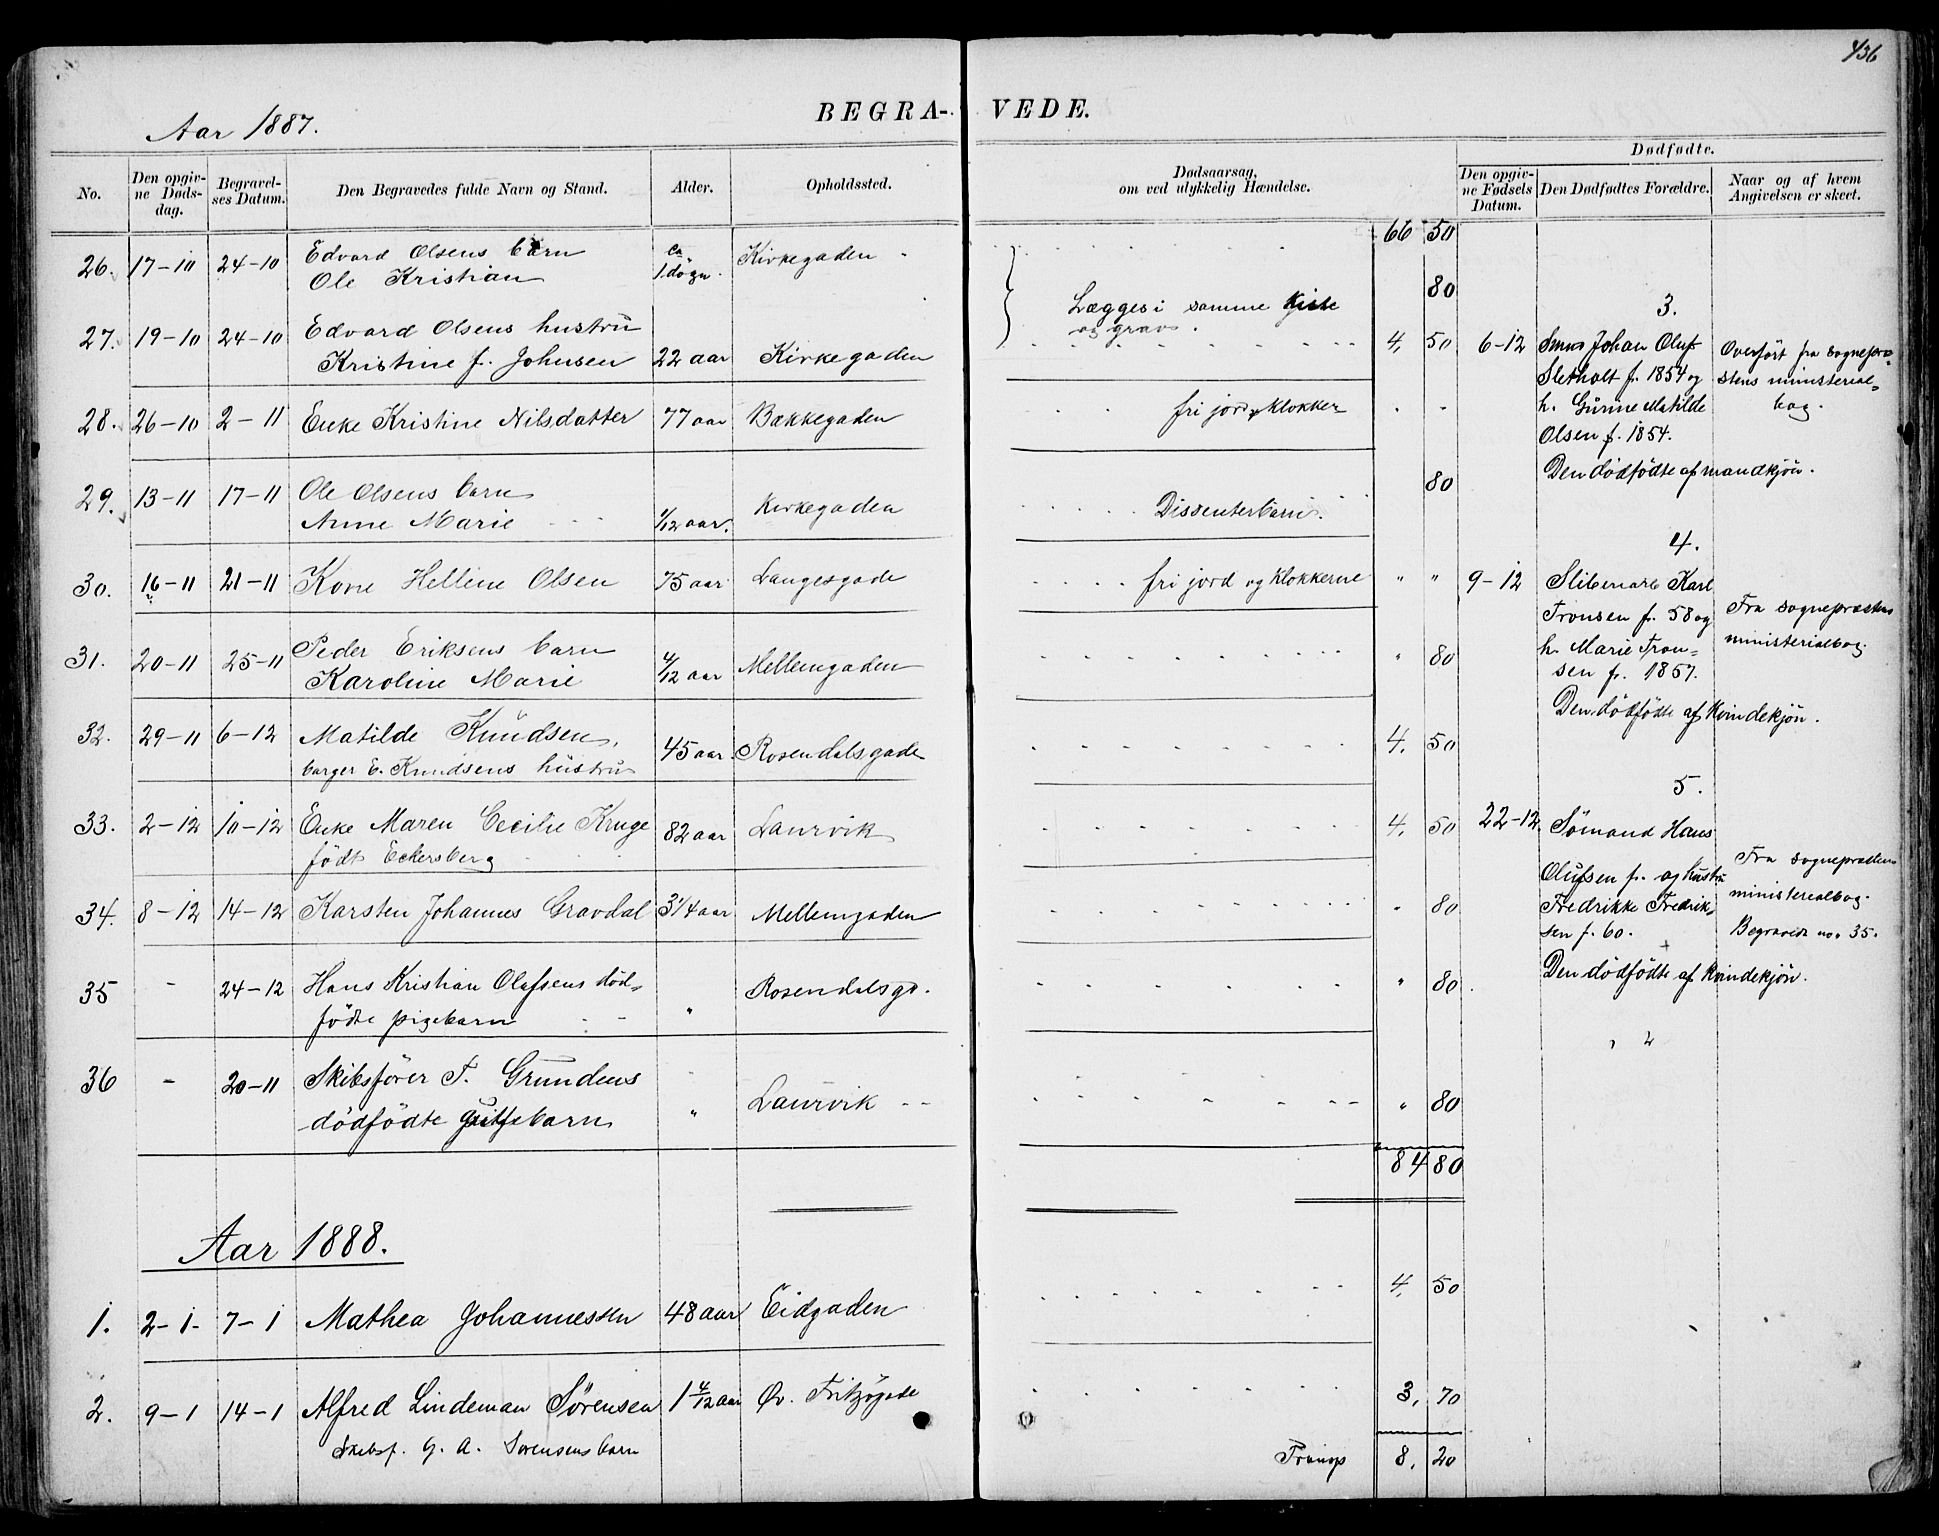 436
Aar 1887.
BEGRA- VEDE.
No.
Den opgivne Dødsdag.
Begravelses Datum.
Den Begravedes fulde Navn og Stand.
Alder.
Opholdssted.
Dødsaarsag, om ved ulykkelig Hændelse.
Dødfødte.
Den opgivne Fødsels Datum.
Den Dødfødtes Forældre.
Naar og af hvem Angivelsen er skeet.
66 50
26. 17-10 24-10 Edvard Olsens barn ca 1 døgn. Kirkegaden
Ole Kristian
80
Lægges i samme Kiste
og grav.
27. 19-10 24-10 Edvard Olsens hustru
Kristine f. Johnsen 22 aar Kirkegaden 4, 50
28. 26-10 2-11 Enke Kristine Nilsdatter 77 aar Bækkegaden fri jord og klokker
29. 13-11 17-11 Ole Olsens barn Kirkegaden Dissenterbarn. 80
Anne Marie 1/12 aar.
30. 16-11 21-11 Kone Hellene Olsen 75 aar Langesgade fri jord og klokkerne " "
31. 20-11 25-11 Peder Eriksens barn
Karoline Marie 4/12 aar Mellemgaden " 80
32. 29-11 6-12 Matilde Knudsen, 45 aar Rosendalsgade 4, 50
borger E. Knudsens hustru
33. 2-12 10-12 Enke Maren Cecilie Kruge 82 aar Laurvik 4, 50
født Eckersberg
34. 8-12 14-12 Karsten Johannes Gravdal 3 1/4 aar Mellemgaden " 80
35 - 24-12 Hans Kristian Olafsens död= " Rosendalsgd. " 80
fødte pigebarn
36 - 20-11 Skibsfører T. Grundens
dödfödte guttebarn " Laurvik " 80
84 80
3.
6-12 Johan Oluf
Sletholt f. 1854 og
h. Gurine Matilde
Olsen f. 1854.
Den dödfödte af mandkjön.
Overført fra sognepræ=
stens ministerial=
bog.
4.
9-12 Karl
Tronsen f. 58 og
h. Marie Tron=
sen f. 1857.
Den dödfödte af kvindekjön.
Fra sognepræstens
ministerialbog.
5.
22-12 Sömand Hans
Olufsen f. og hustru
Fredrikke Fredrik=
sen f. 60.
Den dödfödte af kvindekjön.
Fra sognepræstens
ministerialbog.
Begravede no. 35.
Aar 1888.
1. 2-1- 7-1 Mathea Johannessen 48 aar Eidgaden 4, 50
2. 9-1 14-1 Alfred Lindeman Sørensen 1 4/12 aar Øv. Fritzøgade 3, 70
Skibsf. G. A. Sørensens barn
Transp 8, 20